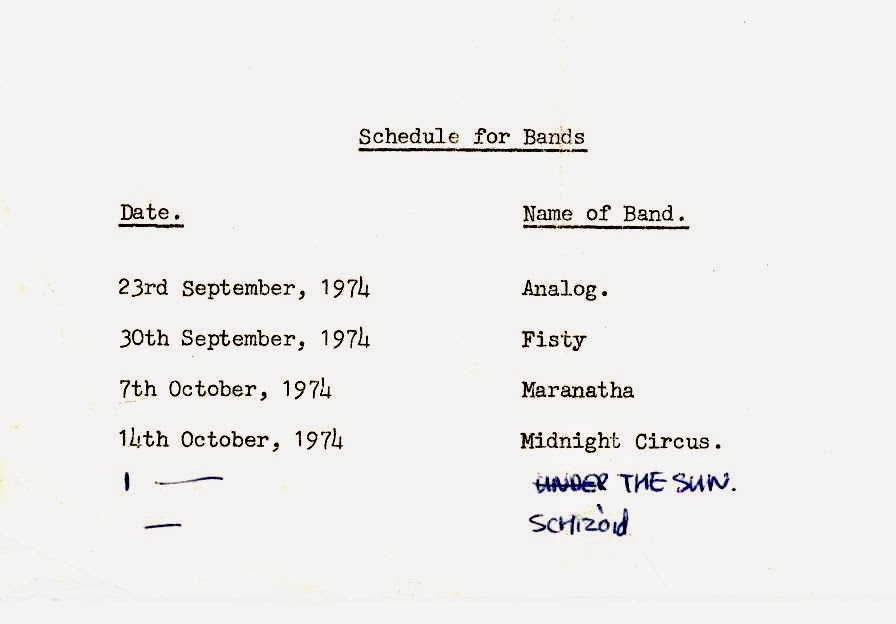 Schedule for Bands
Date. Name of Band.
23rd September, 1974 Analog.
30th September, 1974 Fisty
7th October, 1974 Maranatha
14th October, 1974 Midnight Circus.
1 — UNDER THE SUN.
— SCHIZOID